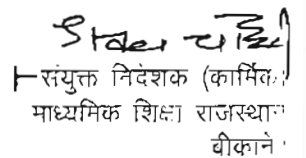 संयुक्त निदेशक (कार्मिक
माध्यमिक शिक्षा राजस्थान
बीकाने